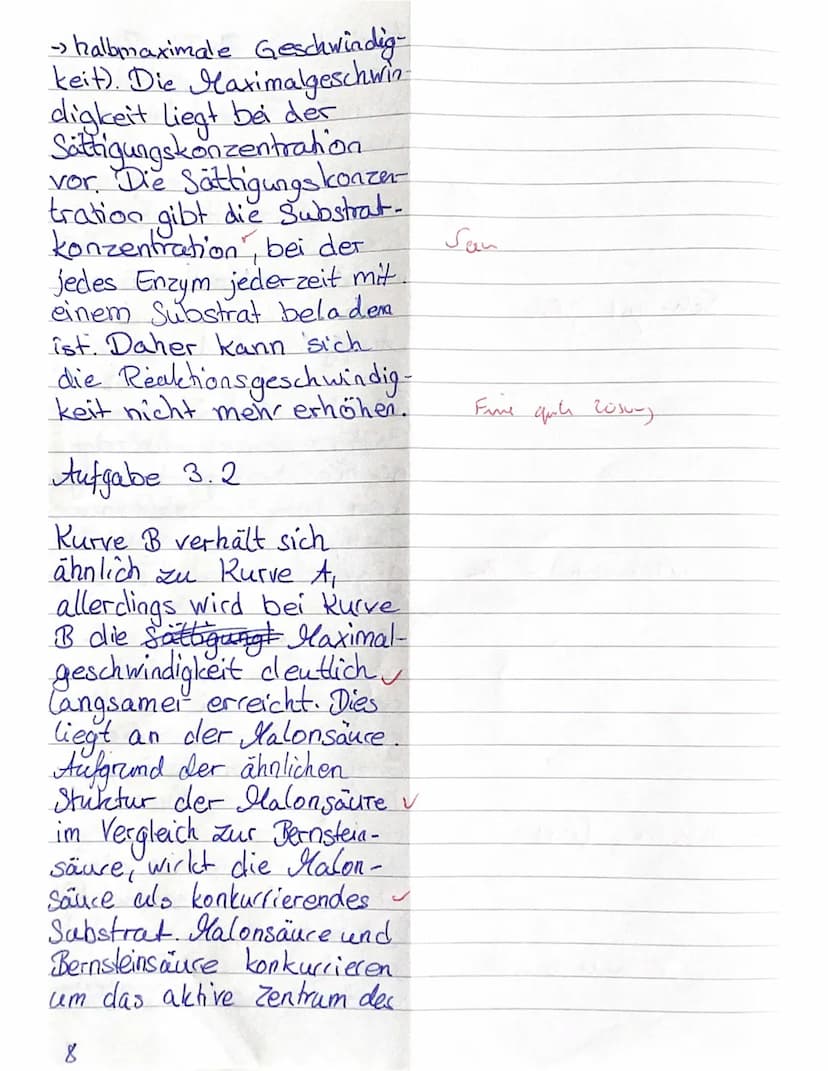 → halbmaximale Geschwindig-
keit). Die Maximalgeschwin-
digkeit liegt bei der
Sättigungskonzentration
vor. Die Sättigungskonzen-
tration gibt die Substrat-
konzentration, bei der
jedes Enzym jederzeit mit
einem Substrat beladem
ist. Daher kann sich
die Reaktionsgeschwindig-
keit nicht mehr erhöhen.
Eine gute Lösung
Aufgabe 3.2
Kurve B verhält sich
ähnlich zu Kurve A,
allerdings wird bei Kurve
B die Maximal-
geschwindigkeit deutlich
langsamer erreicht. Dies
liegt an der Malonsäure.
Aufgrund der ähnlichen
Stuktur der Malonsäure
im Vergleich zur Bernstein-
säure, wirkt die Malon-
säure als konkurrierendes
Substrat. Malonsäure und
Bernsteinsäure konkurrieren
um das aktive Zentrum des
8